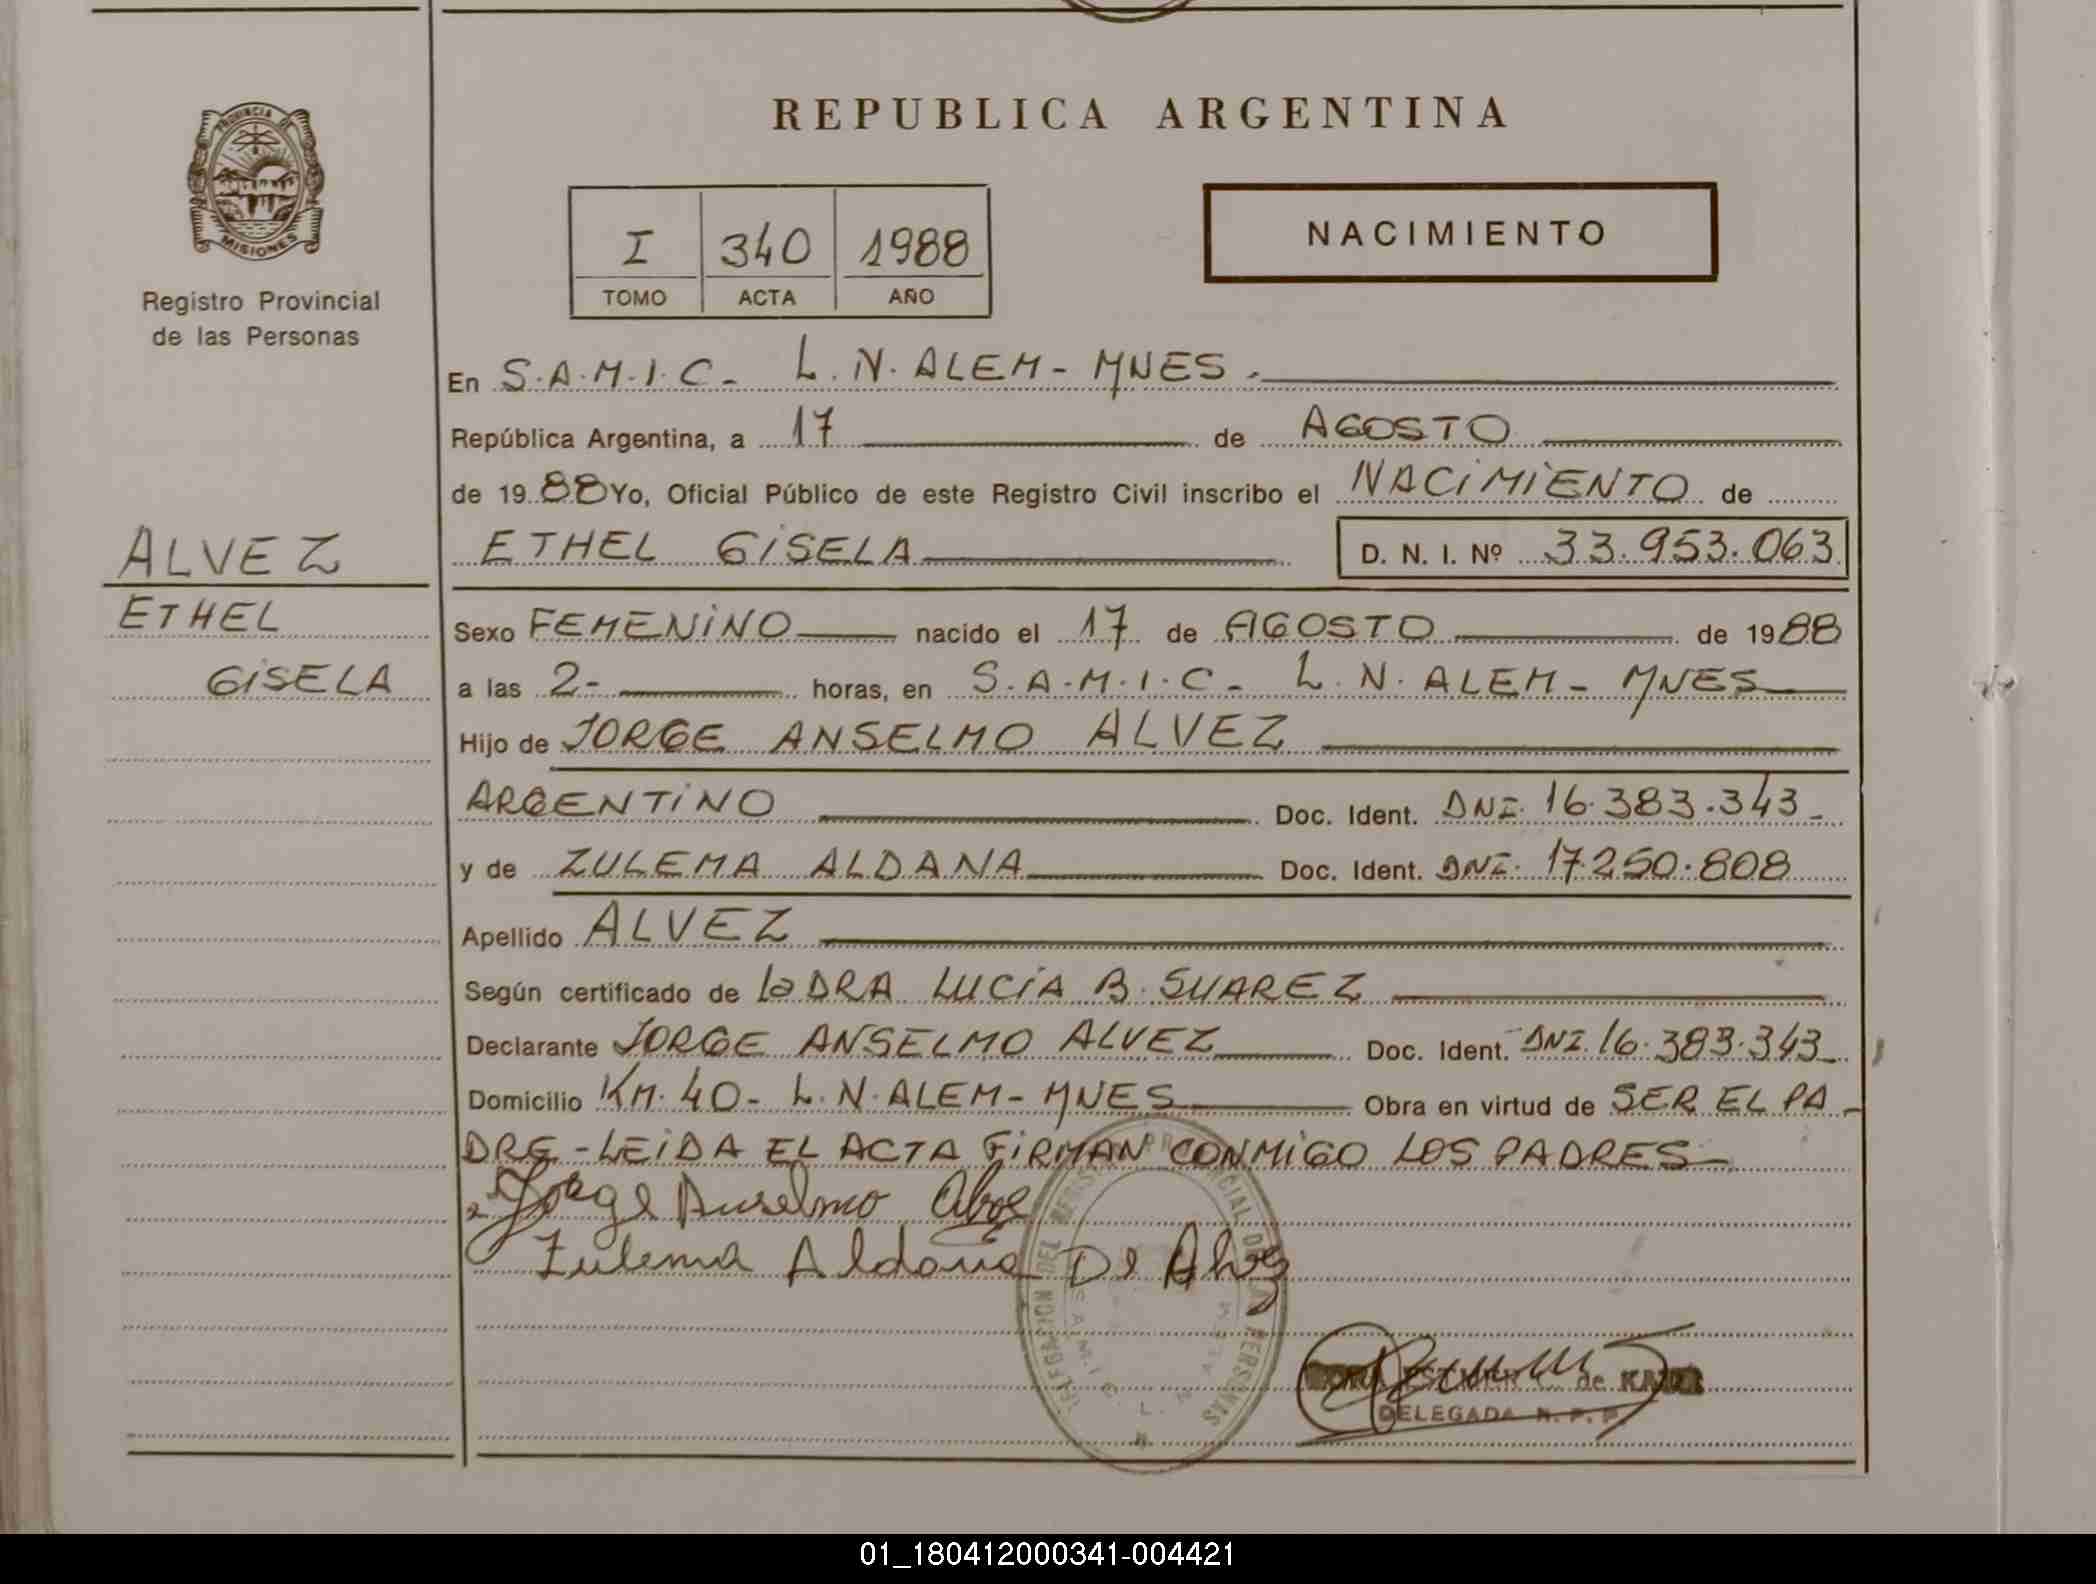 REPUBLICA ARGENTINA
PROVINCIA DE
MISIONES
Registro Provincial
de las Personas
I 340 1988
TOMO ACTA AÑO
NACIMIENTO
En S.A.M.I.C.- L.N. ALEM - MNES.-
República Argentina, a 17 de AGOSTO
de 1988 Yo, Oficial Público de este Registro Civil inscribo el NACIMIENTO de
ETHEL GISELA D. N. I. Nº 33.953.063
ALVEZ
ETHEL
GISELA
Sexo FEMENINO nacido el 17 de AGOSTO de 1988
a las 2- horas, en S.A.M.I.C.- L.N. ALEM - MNES
Hijo de JORGE ANSELMO ALVEZ
ARGENTINO Doc. Ident. DNI. 16.383.343-
y de ZULEMA ALDANA Doc. Ident. DNI. 17.250.808
Apellido ALVEZ
Según certificado de la DRA LUCIA B. SUAREZ
Declarante JORGE ANSELMO ALVEZ Doc. Ident. DNI. 16.383.343
Domicilio KM. 40- L.N. ALEM - MNES Obra en virtud de SER EL PA-
DRE - LEIDA EL ACTA FIRMAN CONMIGO LOS PADRES
Jorge Anselmo
Zulema Aldana De Alvez
DELEGACION DEL REGISTRO PROVINCIAL DE LAS PERSONAS
S.A.M.I.C. L. N. ALEM
de
DELEGADA R. P. P.
01_180412000341-004421